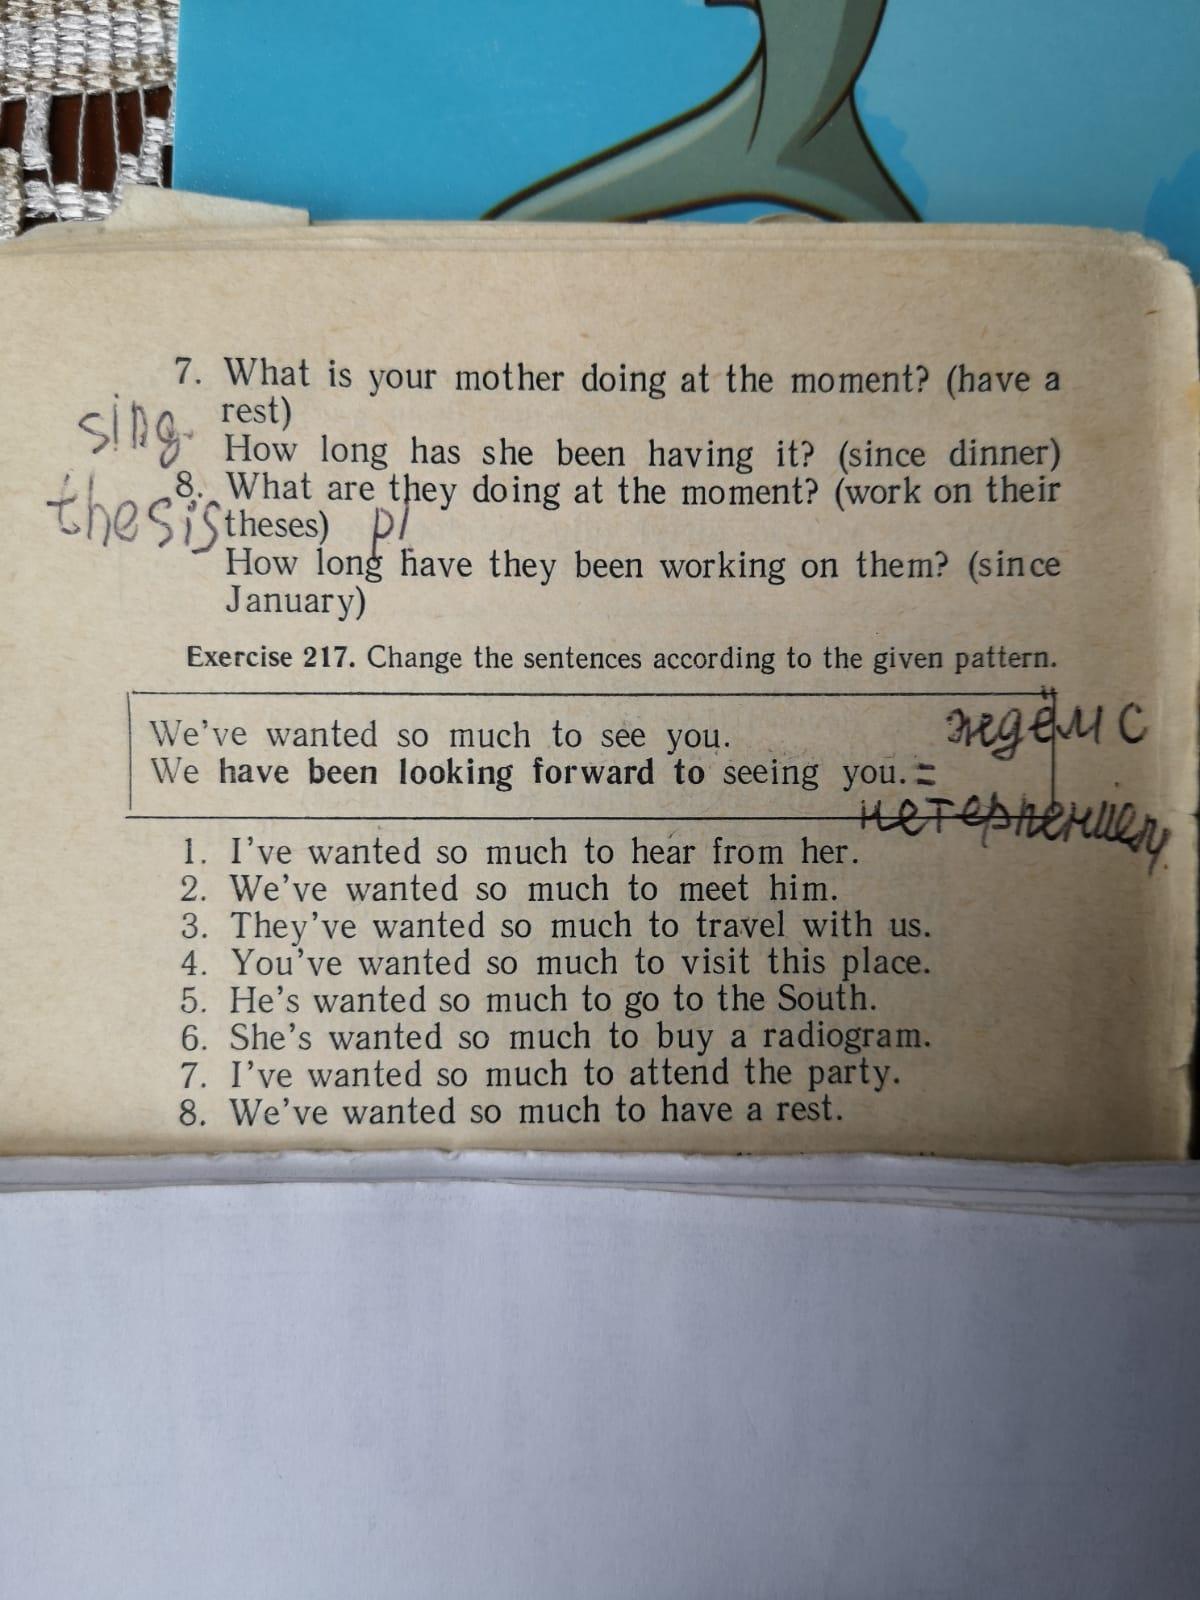 7. What is your mother doing at the moment? (have a
rest)
sing.
How long has she been having it? (since dinner)
8. What are they doing at the moment? (work on their
thesis
theses) pl
How long have they been working on them? (since
January)
Exercise 217. Change the sentences according to the given pattern.
We've wanted so much to see you.
ждём с
We have been looking forward to seeing you. =
нетерпением
1. I've wanted so much to hear from her.
2. We've wanted so much to meet him.
3. They've wanted so much to travel with us.
4. You've wanted so much to visit this place.
5. He's wanted so much to go to the South.
6. She's wanted so much to buy a radiogram.
7. I've wanted so much to attend the party.
8. We've wanted so much to have a rest.